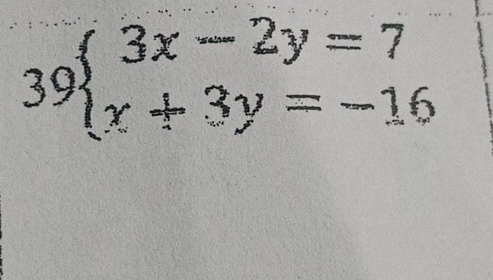 39 { 3x − 2y = 7
x + 3y = −16